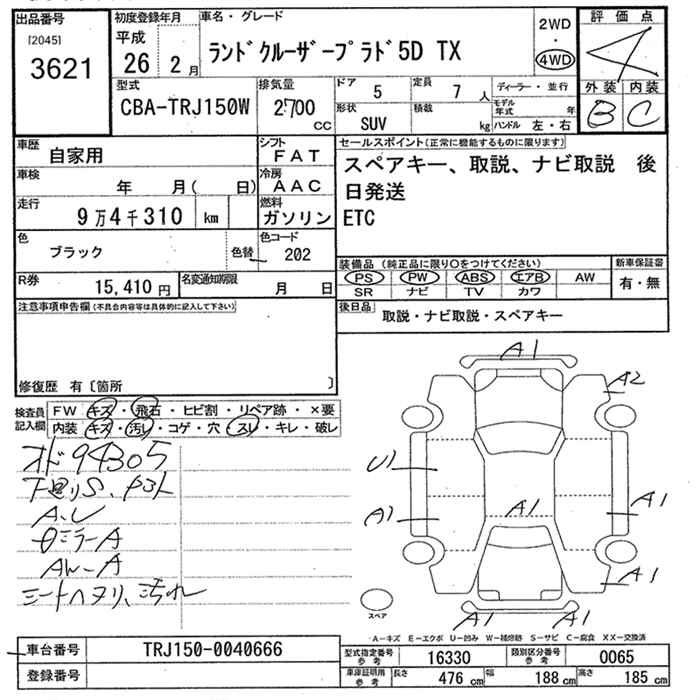 出品番号
[2045]
3621
初度登録年月
平成
26 2月
車名・グレード
ランドクルーザープラド5D TX
2WD
・
4WD
評価点
4
外装 内装
B C
型式
CBA-TRJ150W
排気量
2700
cc
ドア
5
定員
7 人
形状
SUV
積載
kg
ディーラー・並行
モデル年式 年
ハンドル 左・右
車歴
自家用
シフト
FAT
車検
年 月( 日)
冷房
AAC
走行
9万4千310 km
燃料
ガソリン
色
ブラック
色替
色コード
202
R券
15,410円
名変通知期限
月 日
セールスポイント(正常に機能するものに限ります)
スペアキー、取説、ナビ取説 後
日発送
ETC
装備品 (純正品に限り○をつけてください)
PS PW ABS エアB AW
SR ナビ TV カワ
新車保証書
有・無
後日品
取説・ナビ取説・スペアキー
注意事項申告欄(不具合内容等は具体的に記入して下さい)
修復歴 有〔箇所 〕
検査員記入欄
FW キズ・飛石・ヒビ割・リペア跡・×要
内装 キズ・汚レ・コゲ・穴・スレ・キレ・破レ
オド94305
下回りS、
A、U
ミラーA
AW-A
シートヘタリ、汚れ
A1
A2
U1
A1
A1
A1
A1
A1
A1
スペア
A-キズ E-エクボ U-凹み W-補修跡 S-サビ C-腐食 XX-交換済
車台番号
TRJ150-0040666
登録番号
型式指定番号参考
16330
類別区分番号参考
0065
車庫証明用参考
長さ 476 cm
幅 188 cm
高さ 185 cm